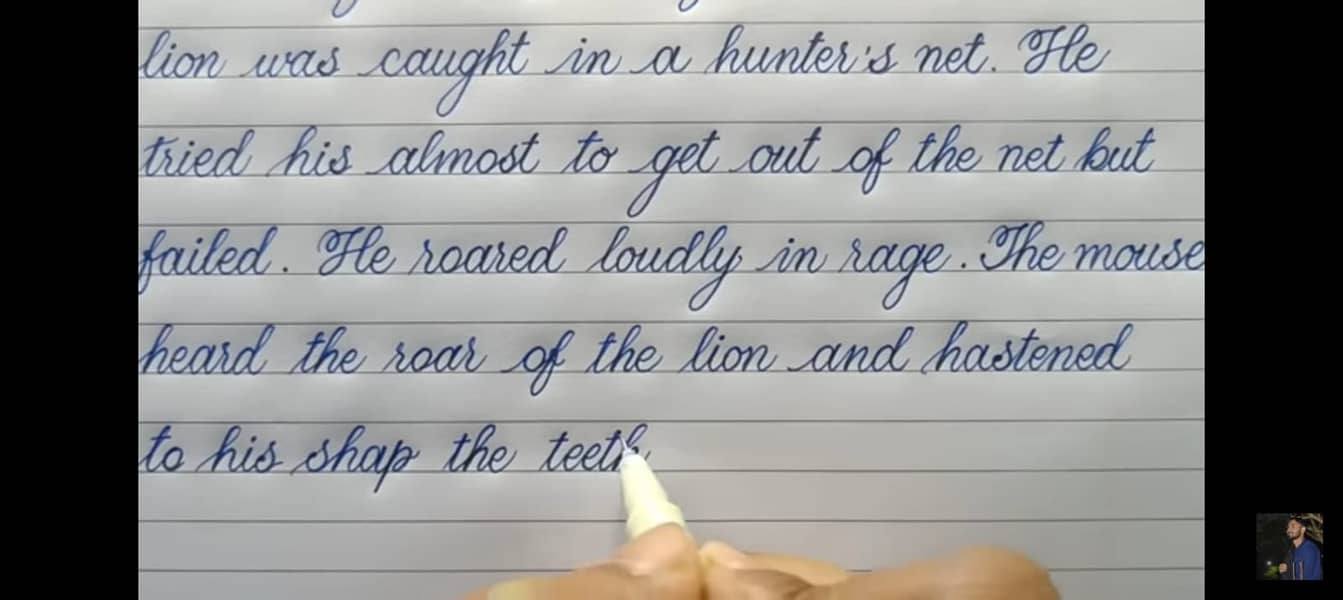 lion was caught in a hunter's net. He
tried his almost to get out of the net but
failed. He roared loudly in rage. The mouse
heard the roar of the lion and hastened
to his shap the teeth